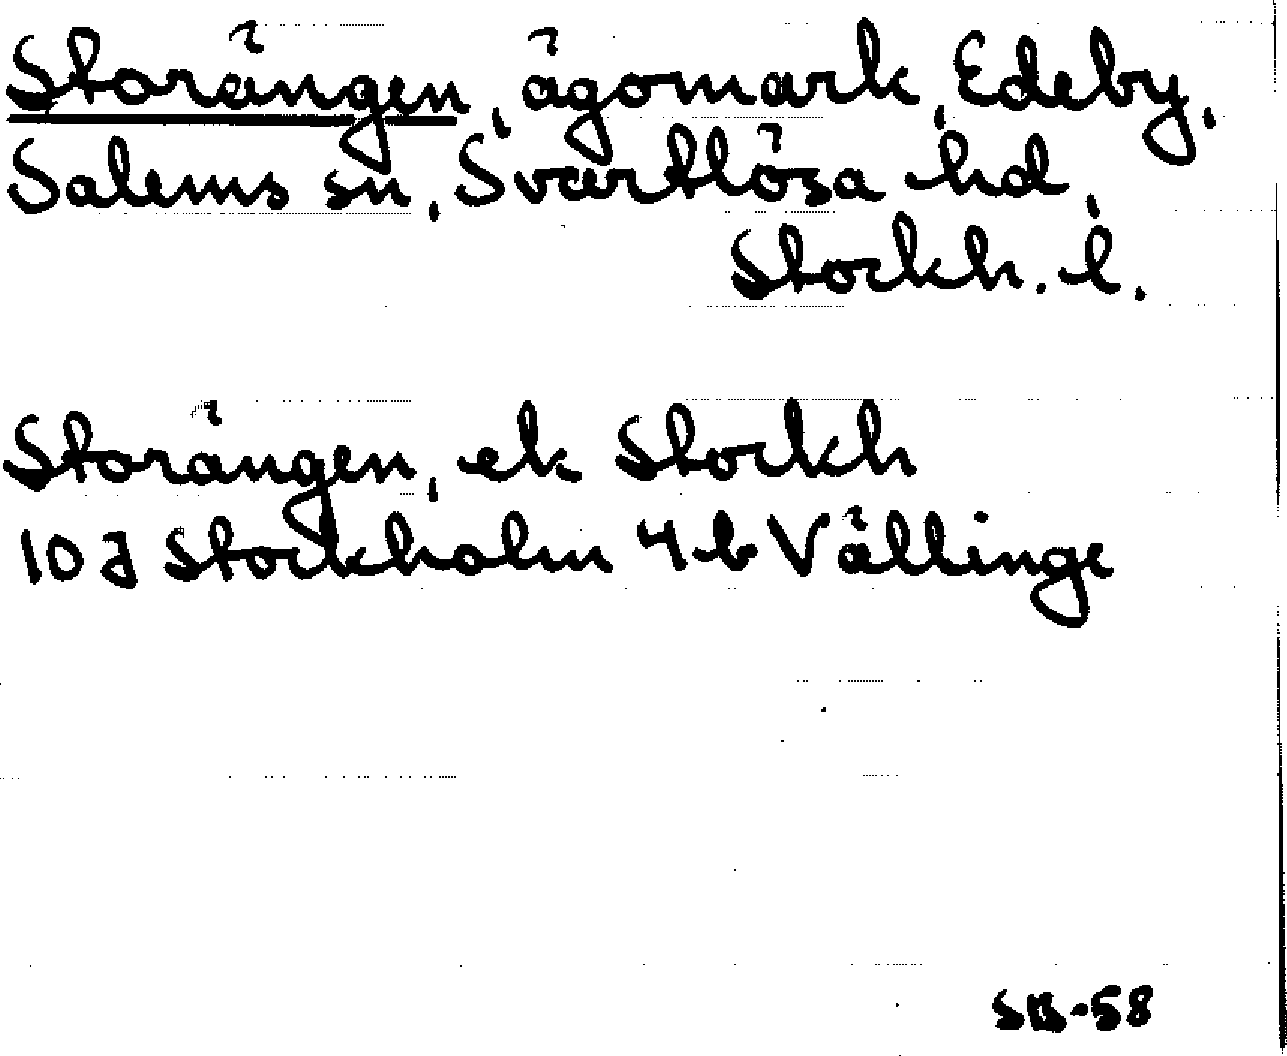 Storängen, ägomark, Edeby,
Salems sn, Svartlösa hd,
Stockh. l.
Storängen, ek Stockh
10 J Stockholm 4 b Vällinge
SB-58